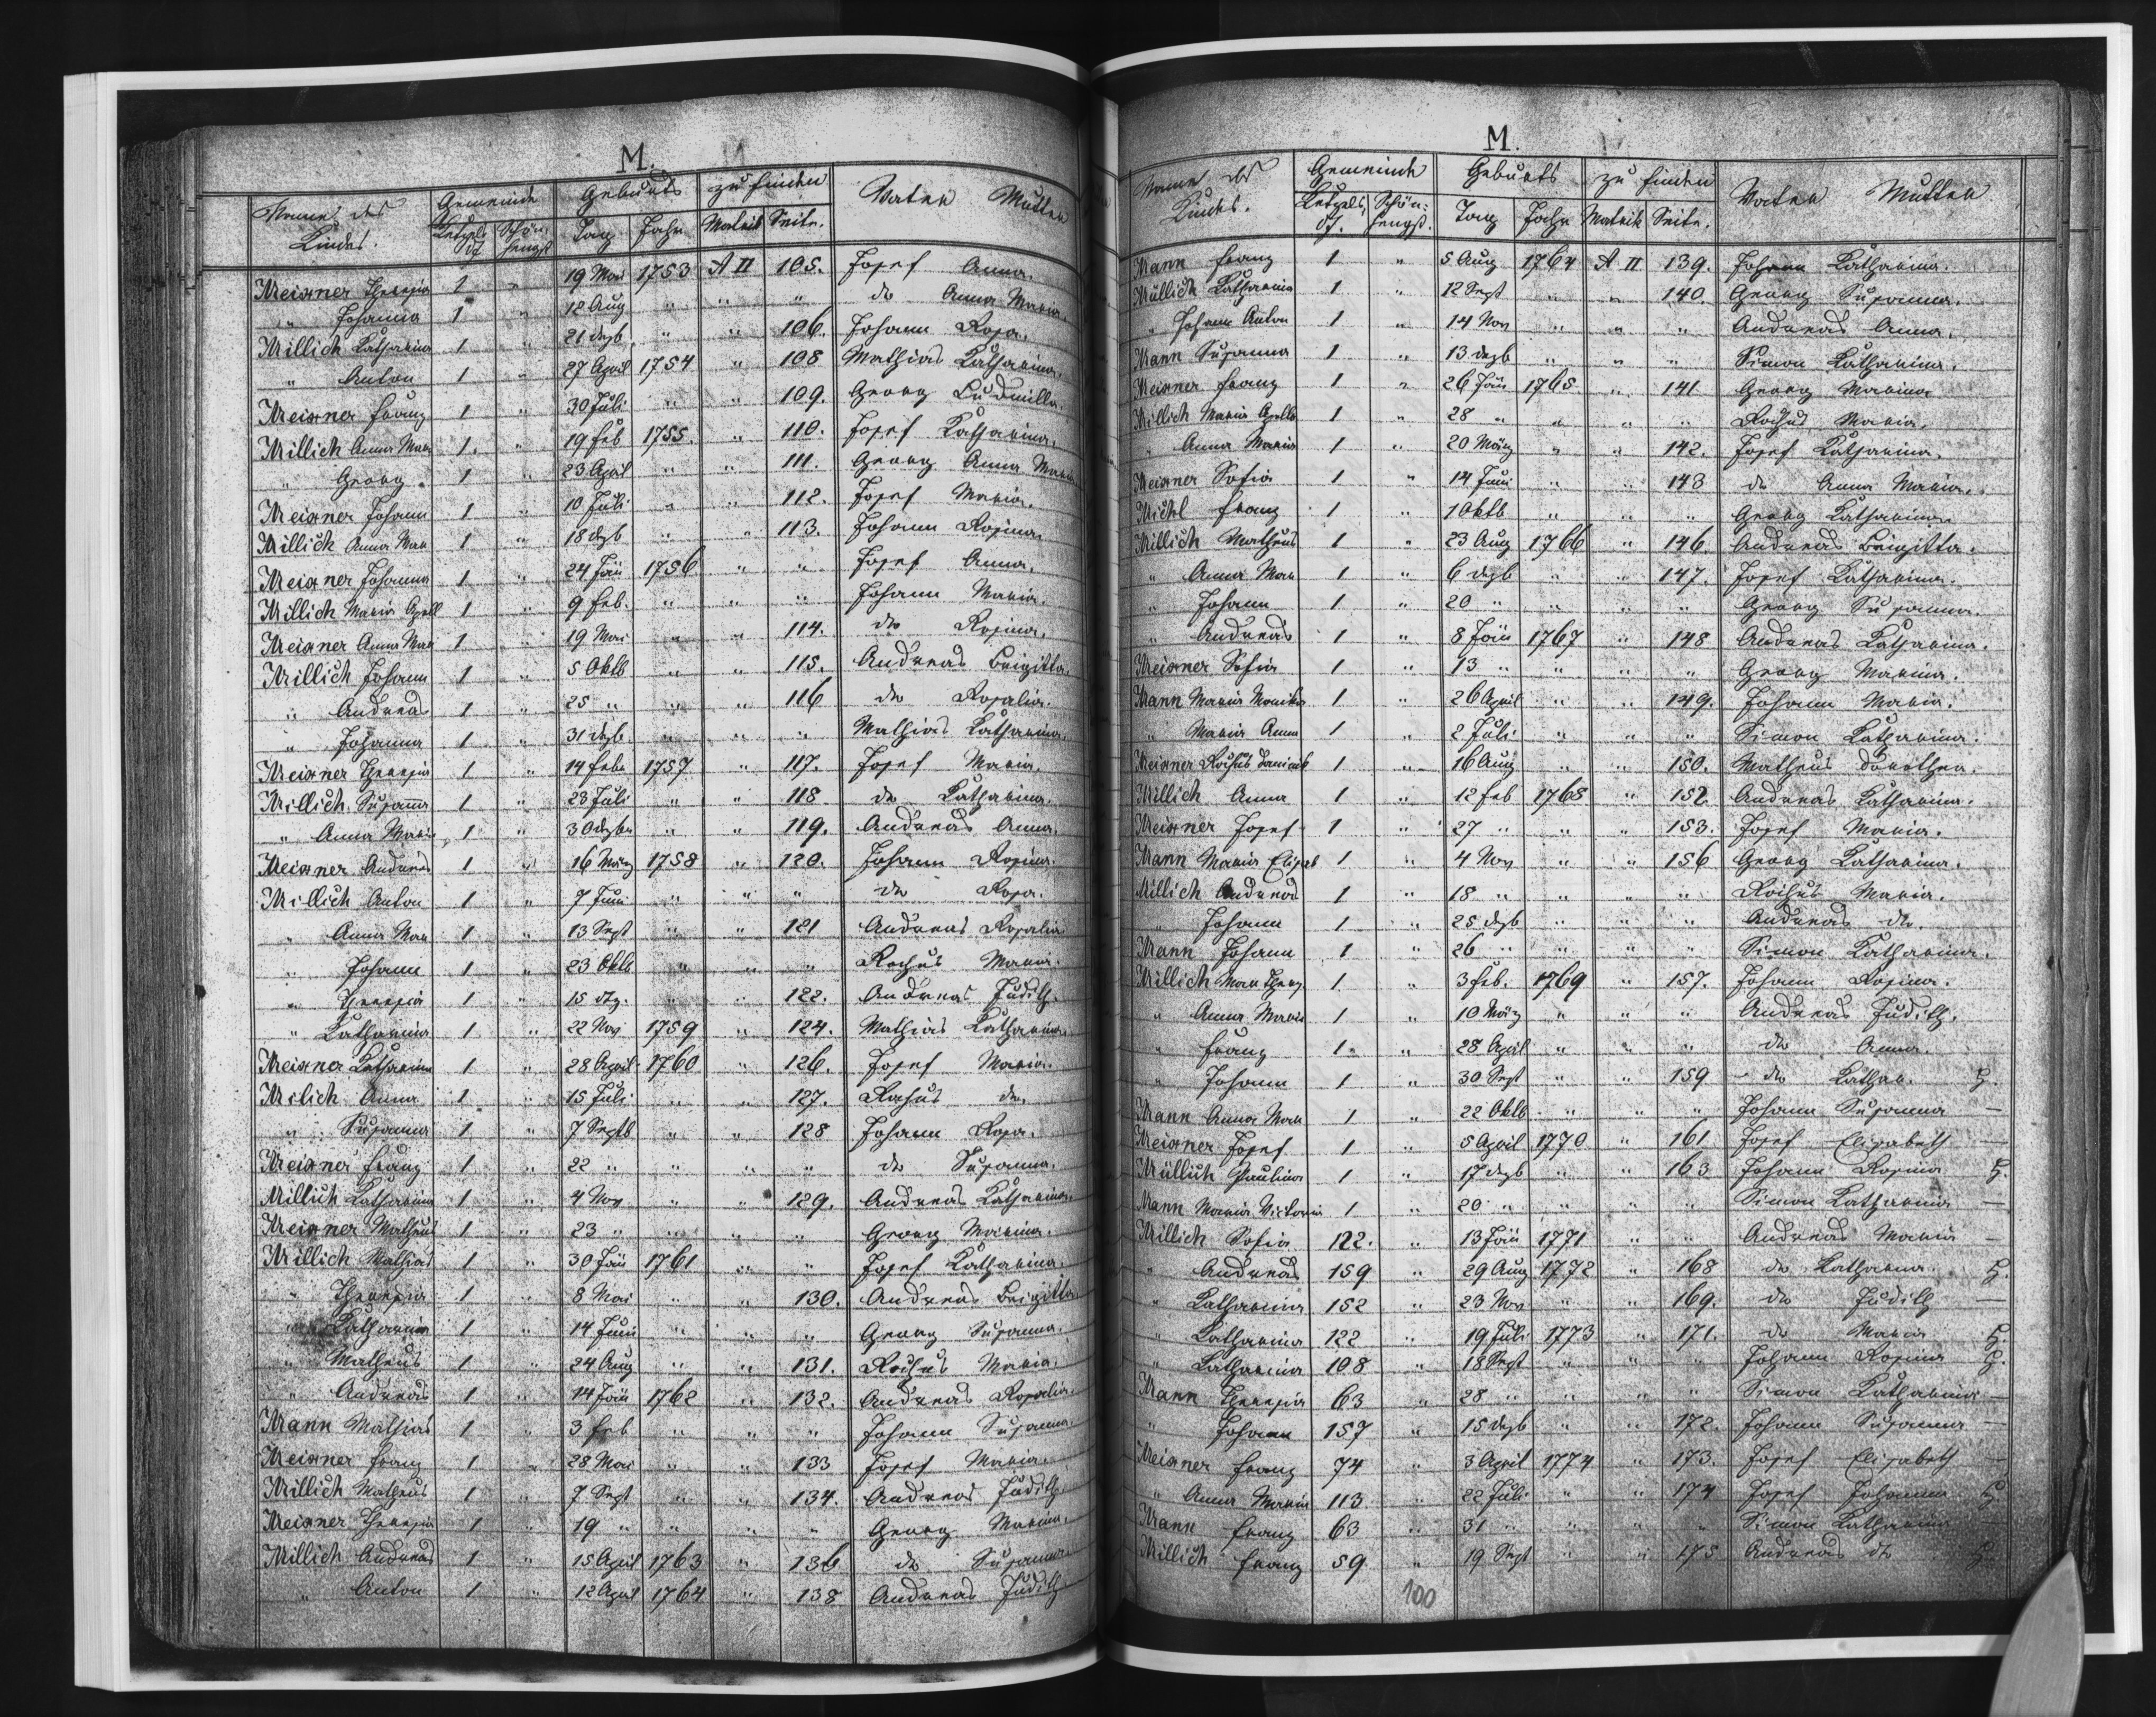 M.
Name des Kindes. Gemeinde Geburts zu finden Vater Mutter
Ketzelsdf Schönhengst Tag Jahr Matrik Seite.
Meixner Theresia 1 " 19 Mai 1753 A II 105. Josef Anna.
" Johanna 1 " 12 Aug " " " do Anna Maria.
Millich Katharina 1 " 21 dezb " " 106. Johann Rosa.
" Anton 1 " 27 April 1754 " 108 Mathias Katharina.
Meixner Franz 1 " 30 Juli " " 109. Georg Ludmilla.
Millich Anna Mar 1. " 19 Feb 1755. " 110. Josef Katharina.
" Georg 1 " 23 April " " 111. Georg Anna Maria
Meixner Johann 1 " 10 Juli " " 112. Josef Maria.
Millich Anna Mar 1 " 18 dzb " " 113. Johann Rosina.
Meixner Johanna 1 " 24 Jän 1756 " " Josef Anna.
Millich Maria Apoll 1 " 9 Feb. " " " Johann Maria.
Meixner Anna Mar 1 " 19 Mai " " 114. do Rosina.
Millich Johann 1 " 5 Oktb " " 115. Andreas Brigitta.
" Andreas 1 " 25 " " " 116 do Rosalia.
" Johanna 1 " 31 dezb. " " " Mathias Katharina.
Meixner Theresia 1 " 14 Feber 1757 " 117. Josef Maria.
Millich Susanna 1 " 23 Juli " " 118 do Katharina.
" Anna Maria 1 " 30 dezbr " " 119. Andreas Anna.
Meixner Andreas 1 " 16 März 1758 " 120. Johann Rosina.
Millich Anton 1 " 7 Juni " " " do Rosa.
" Anna Mar 1 " 13 Sept " " 121 Andreas Rosalia
" Johann 1 " 23 Oktb " " " Rochus Maria.
" Theresia 1 " 15 dtz. " " 122. Andreas Judith.
" Katharina 1 " 22 Nov 1759 " 124. Mathias Katharina.
Meixner Katharina 1 " 28 April 1760 " 126. Josef Maria.
Milich Anna 1 " 15 Juli " " 127. Rochus do.
" Susanna 1 " 7 Septb " " 128 Johann Rosa.
Meixner Franz 1 " 22 " " " " do Susanna.
Millich Katharina 1 " 4 Nov " " 129. Andreas Katharina.
Meixner Matheus 1 " 23 " " " " Georg Marina.
Millich Mathias 1 " 30 Jän 1761 " " Josef Katharina.
" Theresia 1 " 8 Mai " " 130. Andreas Brigitta.
" Katharina 1 " 14 Juni " " " Georg Susanna.
" Matheus 1 " 24 Aug " " 131. Rochus Maria.
" Andreas 1 " 14 Jän 1762 " 132. Andreas Rosalia.
Mann Mathias 1 " 3 Feb " " " Johann Susanna.
Meixner Franz 1 " 28 Mai " " 133 Josef Maria.
Millich Matheus 1 " 7 Sept " " 134. Andreas Judith.
Meixner Theresia 1 " 19 " " " " Georg Marina.
Millich Andreas 1 " 15 April 1763 " 136 do Susanna
" Anton 1 " 12 April 1764 " 138 Andreas Judith
M.
Name des Kindes. Gemeinde Geburts zu finden Vater Mutter
Ketzelsdf. Schönhengst. Tag Jahr Matrik Seite.
Mann Franz 1 " 5 Aug 1764 A II 139. Johann Katharina.
Müllich Katharina 1 " 12 Sept " " 140. Georg Susanna.
" Johann Anton 1 " 14 Nov " " " Andreas Anna.
Mann Susanna 1 " 13 dezb " " " Simon Katharina.
Meixner Franz 1 " 26 Jän 1765 " 141 Georg Marina
Millich Maria Apollo 1 " 28 " " " " Rochus Maria.
" Anna Maria 1 " 20 März " " 142. Josef Katharina.
Meixner Sofia 1 " 14 Juni " " 143 do Anna Maria.
Michl Franz 1 " 1 Oktb " " " Georg Katharina
Millich Matheus 1 " 23 Aug 1766 " 146. Andreas Brigitta.
" Anna Mar 1 " 6 dezb " " 147. Josef Katharina.
" Johann 1 " 20 " " " " Georg Susanna.
" Andreas 1 " 8 Jän 1767 " 148 Andreas Katharina.
Meixner Sofia 1 " 13 " " " " Georg Marina.
Mann Maria Monika 1 " 26 April " " 149. Johann Maria.
" Maria Anna 1 " 2 Juli " " " Simon Katharina.
Meixner Rochus Dominik 1 " 16 Aug " " 150. Matheus Dorothea.
Millich Anna 1 " 12 Feb 1768 " 152. Andreas Katharina.
Meixner Josef 1 " 27 " " " 153. Josef Maria.
Mann Maria Elisab 1 " 4 Nov " " 156 Georg Katharina.
Millich Andreas 1 " 18 " " " " Rochus Maria.
" Johann 1 " 25 dezb " " " Andreas do.
Mann Johann 1 " 26 " " " " Simon Katharina.
Millich Mar Theres 1 " 3 Feb. 1769 " 157. Johann Rosina.
" Anna Maria 1 " 10 März " " " Andreas Judith.
" Franz 1 " 28 April " " " do Anna.
" Johann 1 " 30 Sept " " 159 do Kathar.
Mann Anna Mar 1 " 22 Oktb " " " Johann Susanna —
Meixner Josef 1 " 5 April 1770 " 161 Josef Elisabeth —
Müllich Paulina 1 " 17 dezb " " 163 Johann Rosina
Mann Maria Victoria 1 " 20 " " " " Simon Katharina —
Millich Sofia 122. " 13 Jän 1771 " " Andreas Maria —
" Andreas 159 " 29 Aug 1772 " 168 do Katharina.
" Katharina 152 " 23 Nov " " 169. do Judith —
" Katharina 122 " 19 Juli 1773 " 171. do Maria
" Katharina 108 " 18 Sept " " " Johann Rosina
Mann Theresia 63 " 28 " " " " Simon Katharina —
" Johann 157 " 15 dezb " " 172. Johann Susanna —
Meixner Franz 74 " 3 April 1774 " 173. Josef Elisabeth —
" Anna Maria 113 " 22 Juli " " 174 Josef Johanna
Mann Franz 63 " 31 " " " " Simon Katharina
Millich Franz 59 " 19 Sept " " 175 Andreas do
100